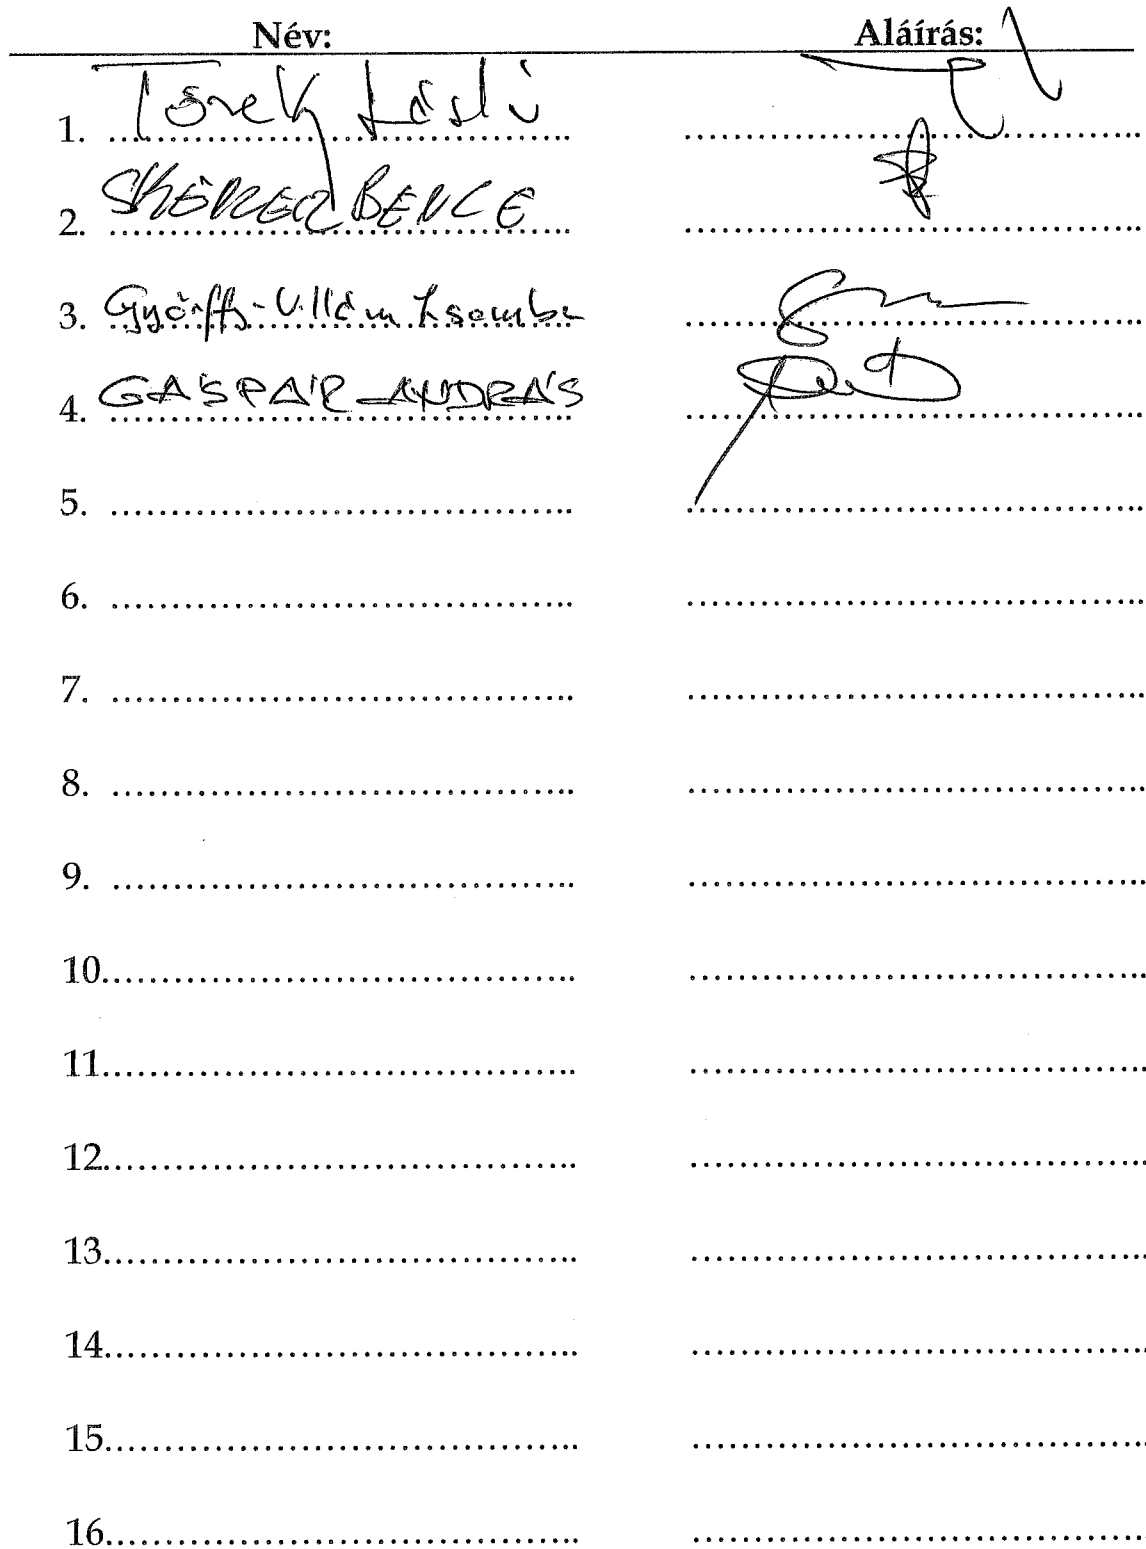 Név: Aláírás:
1. Török László
2. BENCE
3. Györffy-Villám Zsombor
4. GÁSPÁR ANDRÁS
5.
6.
7.
8.
9.
10.
11.
12.
13.
14.
15.
16.